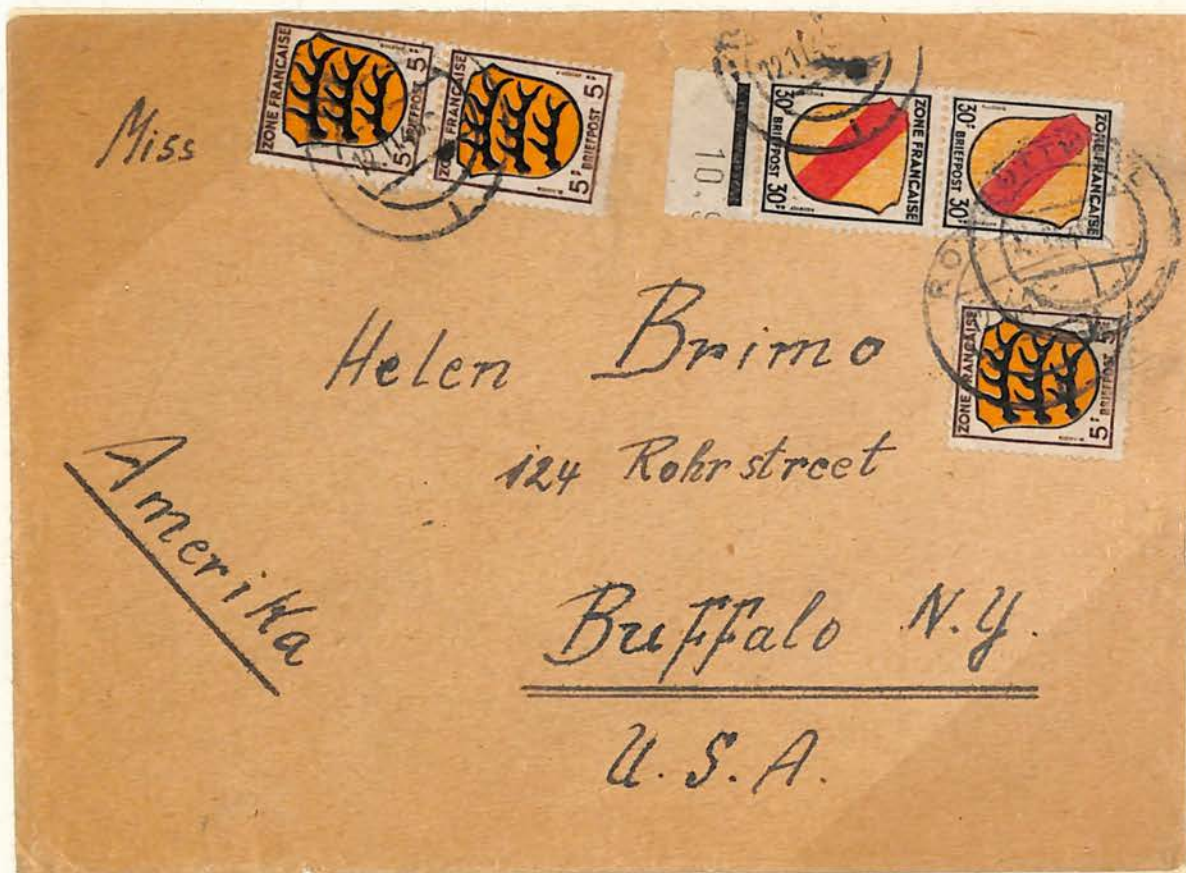 ZONE FRANÇAISE
5
BRIEFPOST 5
ZONE FRANÇAISE
5
BRIEFPOST 5
10
30 BRIEFPOST 30
ZONE FRANÇAISE
30 BRIEFPOST 30
ZONE FRANÇAISE
12.11
Miss
Helen Brimo
ZONE FRANÇAISE
5
BRIEFPOST 5
124 Rohrstreet
Amerika
Buffalo N.Y.
U.S.A.